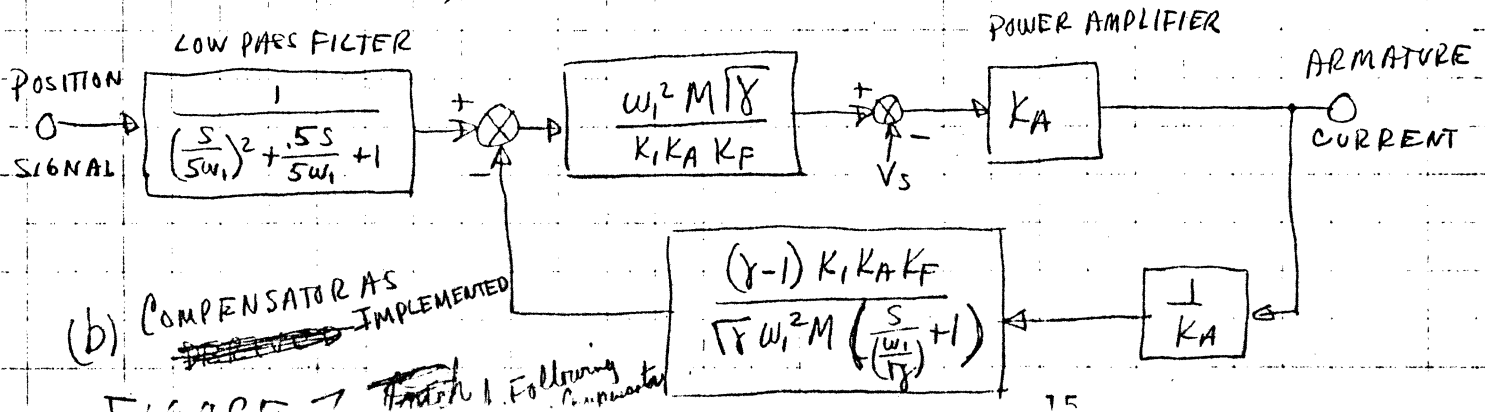 LOW PASS FILTER
POWER AMPLIFIER
POSITION
SIGNAL
1
(S/5ω₁)² + .5S/5ω₁ + 1
+
-
ω₁² M √γ
K₁ K_A K_F
+
-
V_S
K_A
ARMATURE
CURRENT
(γ-1) K₁ K_A K_F
√γ ω₁² M (S/(ω₁/√γ) + 1)
1
K_A
(b) COMPENSATOR AS
IMPLEMENTED
Following
15